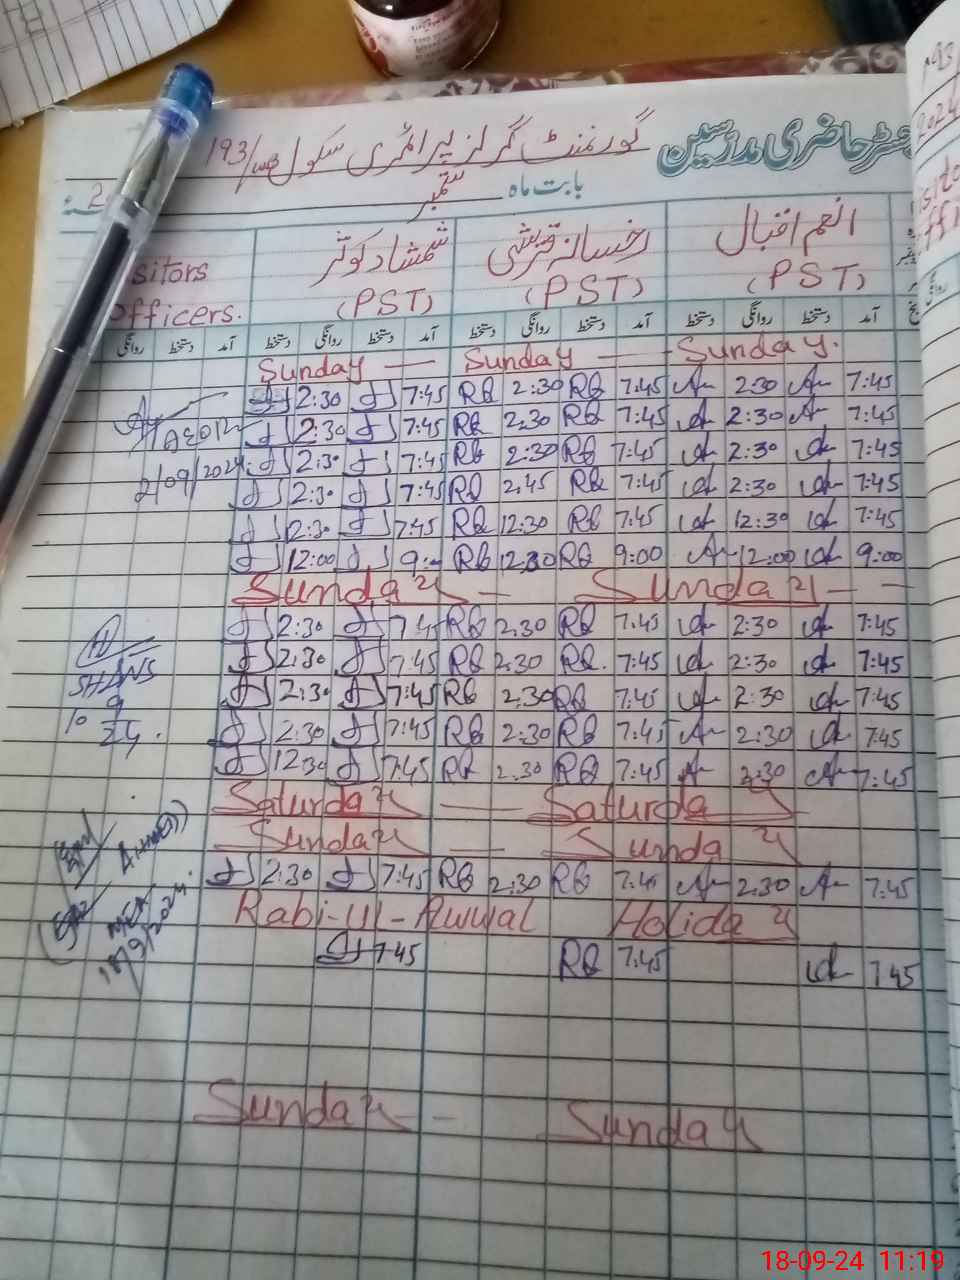 رجسٹر حاضری مدرسین گورنمنٹ گرلز پرائمری سکول 193/
بابت ماہ ستمبر
انعم اقبال رخسانہ قریشی شمشاد کوثر
(PST) (PST) (PST) Officers.
آمد دستخط روانگی دستخط آمد دستخط روانگی دستخط آمد دستخط روانگی دستخط آمد دستخط روانگی
Sunday — Sunday — Sunday.
2:30 7:45 RQ 2:30 RQ 7:45 2:30 7:45
2:30 7:45 RQ 2.30 RQ 7:45 2:30 7:45
2:30 7:45 RQ 2:30 RQ 7:45 2:30 7:45
2/09/2024
2:30 7:45 RQ 2.45 RQ 7:45 2:30 7:45
12:30 7:45 RQ 12.30 RQ 7:45 12:30 7:45
12:00 9: RQ 12.30 RQ 9:00 12:00 9:00
Sunday — Sunday —
2:30 7:45 RQ 2.30 RQ 7:45 2:30 7:45
2:30 7:45 RQ 2:30 RQ. 7:45 2:30 7:45
2:30 7:45 RQ 2.30 RQ 7:45 2:30 7:45
10 9 24.
2:30 7:45 RQ 2:30 RQ 7:45 2:30 7:45
12:30 7:45 RQ 2.30 RQ 7:45 2:30 7:45
Saturday — Saturday
Sunday — Sunday
2:30 7:45 RQ 2.30 RQ 7:45 2.30 7:45
Rabi-ul-Awwal Holiday
MEA
7:45 RQ 7:45 7:45
Sunday — Sunday
18-09-24 11:19